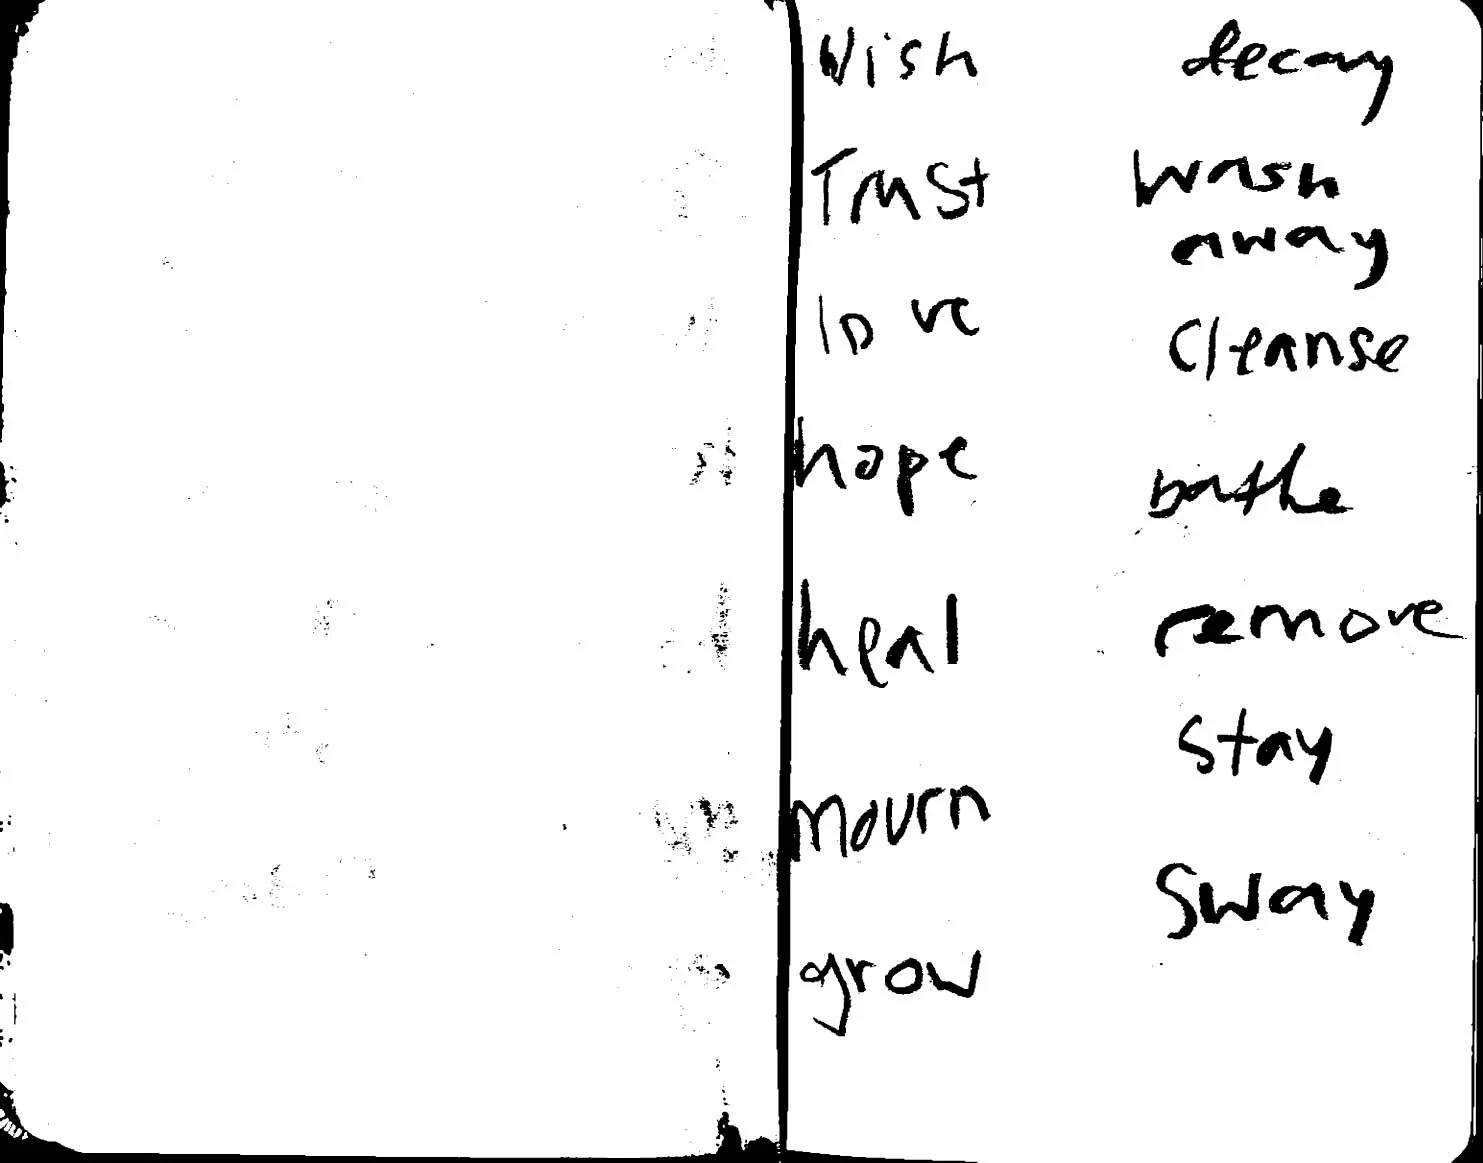 Wish
Trust
love
hope
heal
mourn
grow
decay
wash
away
cleanse
bathe
remove
stay
sway